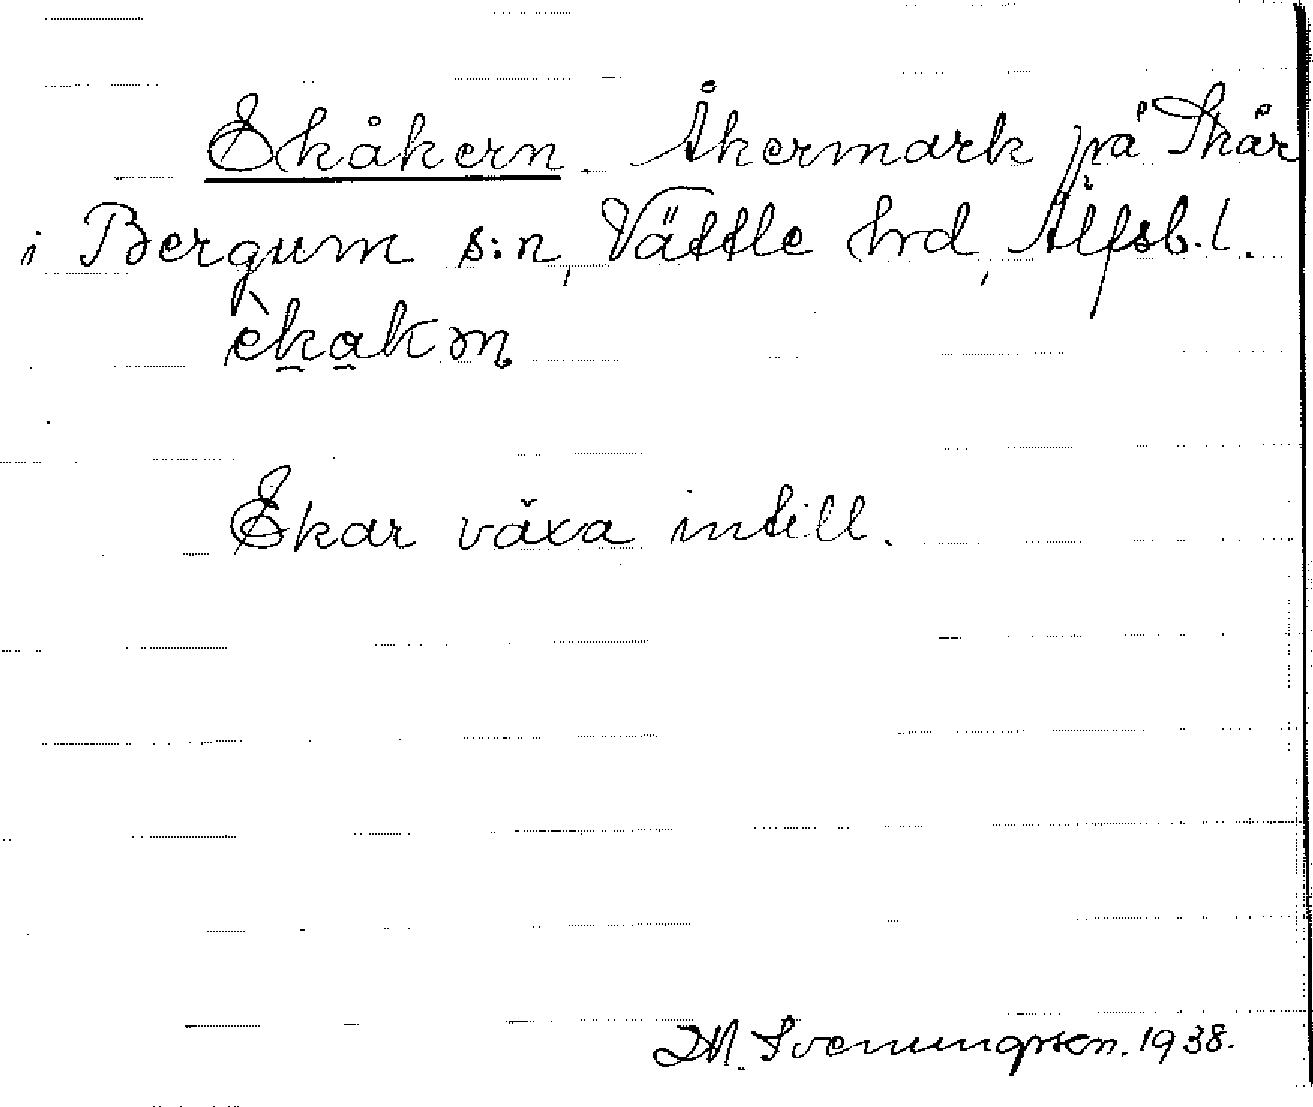 Ekåkern Åkermark på Skår
i Bergum s:n, Vättle hrd, Älfsb. l.
èkakm
Ekar växa intill.
M. Svenungsson. 1938.